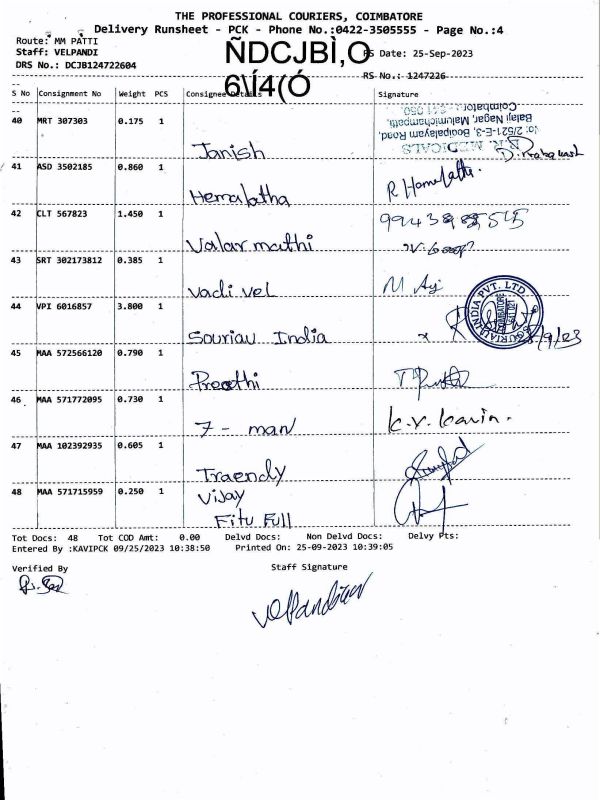 THE PROFESSIONAL COURIERS, COIMBATORE
Delivery Runsheet - PCK - Phone No.:0422-3505555 - Page No.:4
Route: MM PATTI
Staff: VELPANDI
DRS No.: DCJB124722604
ÑDCJBÌ,O
6\Í4(Ó
RS Date: 25-Sep-2023
RS No.: 1247226
S No Consignment No Weight PCS Consignee Details Signature
40 MRT 307303 0.175 1 Janish
B.R. MEDICALS
No: 2/521-E-3, Boojpalayam Road,
Balaji Nagar, Malumichampatti,
Coimbatore - 641 050.
D. Prabakash
41 ASD 3502185 0.860 1 Hemalatha R Hemalatha.
42 CLT 567823 1.450 1 Valarmathi 9943985515
43 SRT 302173812 0.385 1 Vadivel
44 VPI 6016857 3.800 1 Souriau India
SOURIAU INDIA PVT. LTD
COIMBATORE
641 021
/9/23
45 MAA 572566120 0.790 1 Preethi
46 MAA 571772095 0.730 1 7 - man K.V. Kavin.
47 MAA 102392935 0.605 1 Traendy
48 MAA 571715959 0.250 1 Vijay
Fitu Full
Tot Docs: 48 Tot COD Amt: 0.00 Delvd Docs: Non Delvd Docs: Delvy Pts:
Entered By :KAVIPCK 09/25/2023 10:38:50 Printed On: 25-09-2023 10:39:05
Verified By Staff Signature
Velpandian